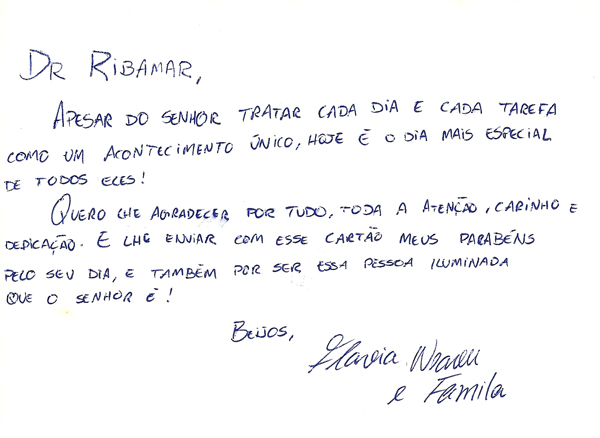 DR RIBAMAR,
APESAR DO SENHOR TRATAR CADA DIA E CADA TAREFA
COMO UM ACONTECIMENTO ÚNICO, HOJE É O DIA MAIS ESPECIAL
DE TODOS ELES!
QUERO LHE AGRADECER POR TUDO, TODA A ATENÇÃO, CARINHO E
DEDICAÇÃO. E LHE ENVIAR COM ESSE CARTÃO MEUS PARABÉNS
PELO SEU DIA, E TAMBÉM POR SER ESSA PESSOA ILUMINADA
QUE O SENHOR É!
BEIJOS,
Flavia
e Familia